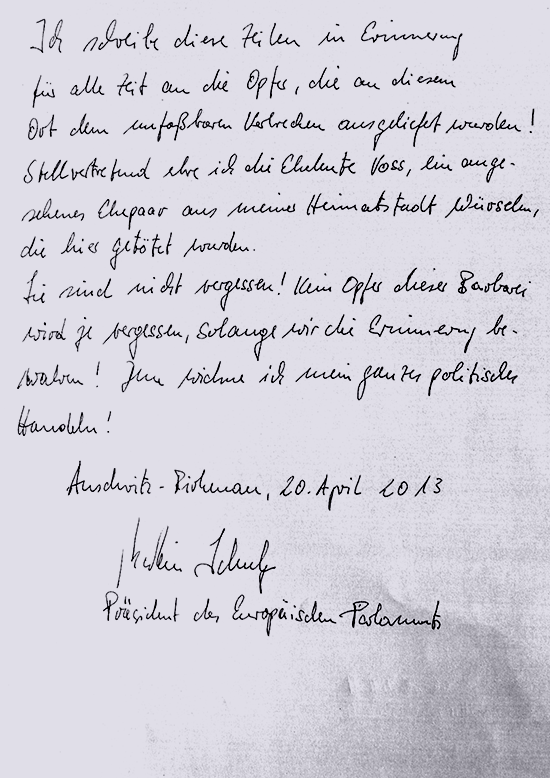 Ich schreibe diese Zeilen in Erinnerung
für alle Zeit an die Opfer, die an diesem
Ort dem unfaßbaren Verbrechen ausgeliefert wurden!
Stellvertretend ehre ich die Eheleute Voss, ein ange-
sehenes Ehepaar aus meiner Heimatstadt Würselen,
die hier getötet wurden.
Sie sind nicht vergessen! Kein Opfer dieser Barbarei
wird je vergessen, solange wir die Erinnerung be-
wahren! Ihnen widme ich mein ganzes politisches
Handeln!
Auschwitz-Birkenau, 20. April 2013
Martin Schulz
Präsident des Europäischen Parlaments